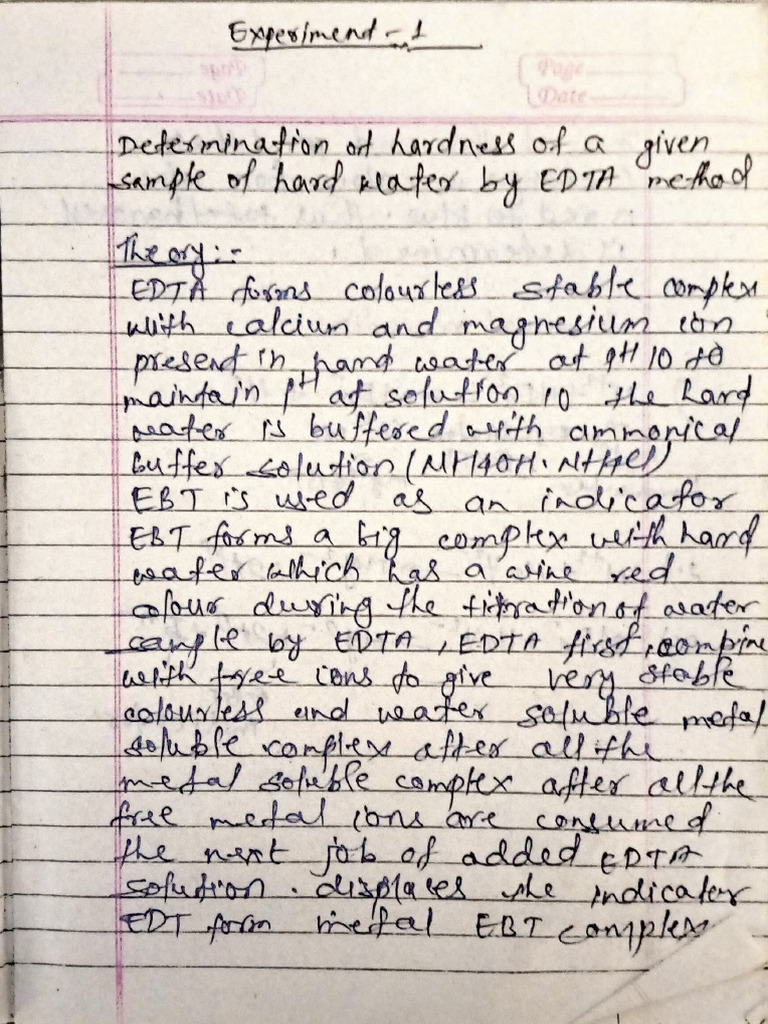 Experiment - 1
Page
Date
Determination of hardness of a given
sample of hard water by EDTA method
Theory:-
EDTA forms colourless stable complex
with calcium and magnesium ion
present in hard water at pH 10 to
maintain pH of solution 10 the hard
water is buffered with ammonical
buffer solution (NH4OH. NH4Cl)
EBT is used as an indicator
EBT forms a big complex with hard
water which has a wine red
colour during the titration of water
sample by EDTA, EDTA first, combine
with free ions to give very stable
colourless and water soluble metal
soluble complex after all the
metal soluble complex after all the
free metal ions are consumed
the next job of added EDTA
solution. displaces the indicater
EDT form metal EBT complex